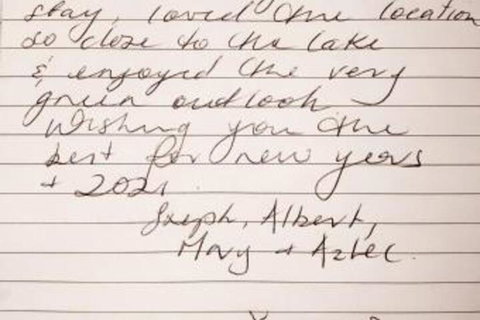 stay, loved the location
so close to the lake
& enjoyed the very
green outlook
Wishing you the
best for new years
+ 2021
Joseph, Albert,
Mary + Aztec.